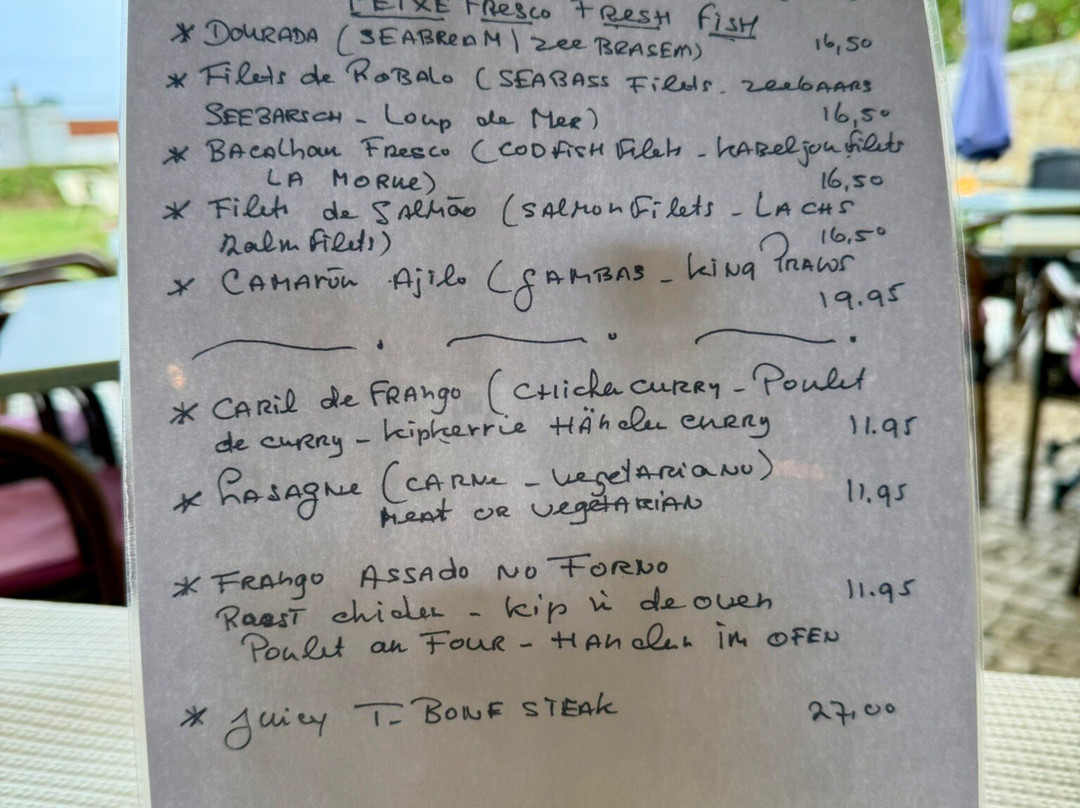 PEIXE FRESCO FRESH FISH
* DOURADA (SEABREAM | zee BRASEM) 16,50
* Filets de ROBALO (SEABASS Filets. zeebAARS
SEEBARSCH - Loup de Mer) 16,50
* BACAlhau FRESCO (CODFISH Filets - KABeljau filets
LA MORUE) 16,50
* Filets de SALMÃO (SALMON Filets - LACHS
Zalm Filets) 16,50
* CAMARÕN Ajilo (GAMBAS - King PRAWS
19.95
* CARil de FRANGO (CHicken CURRY - Poulet
de CURRY - kipkerrie HÄhnchen CURRY 11.95
* LASAGNE (CARNE - VegetARiANO)
MEAT OR VegetARIAN 11.95
* FRANGO ASSADO NO FORNO 11.95
ROAST chicken - kip ü de oven
Poulet au FOUR - HAHnchen im OFEN
* Juicy T-BONE STEAK 27,00